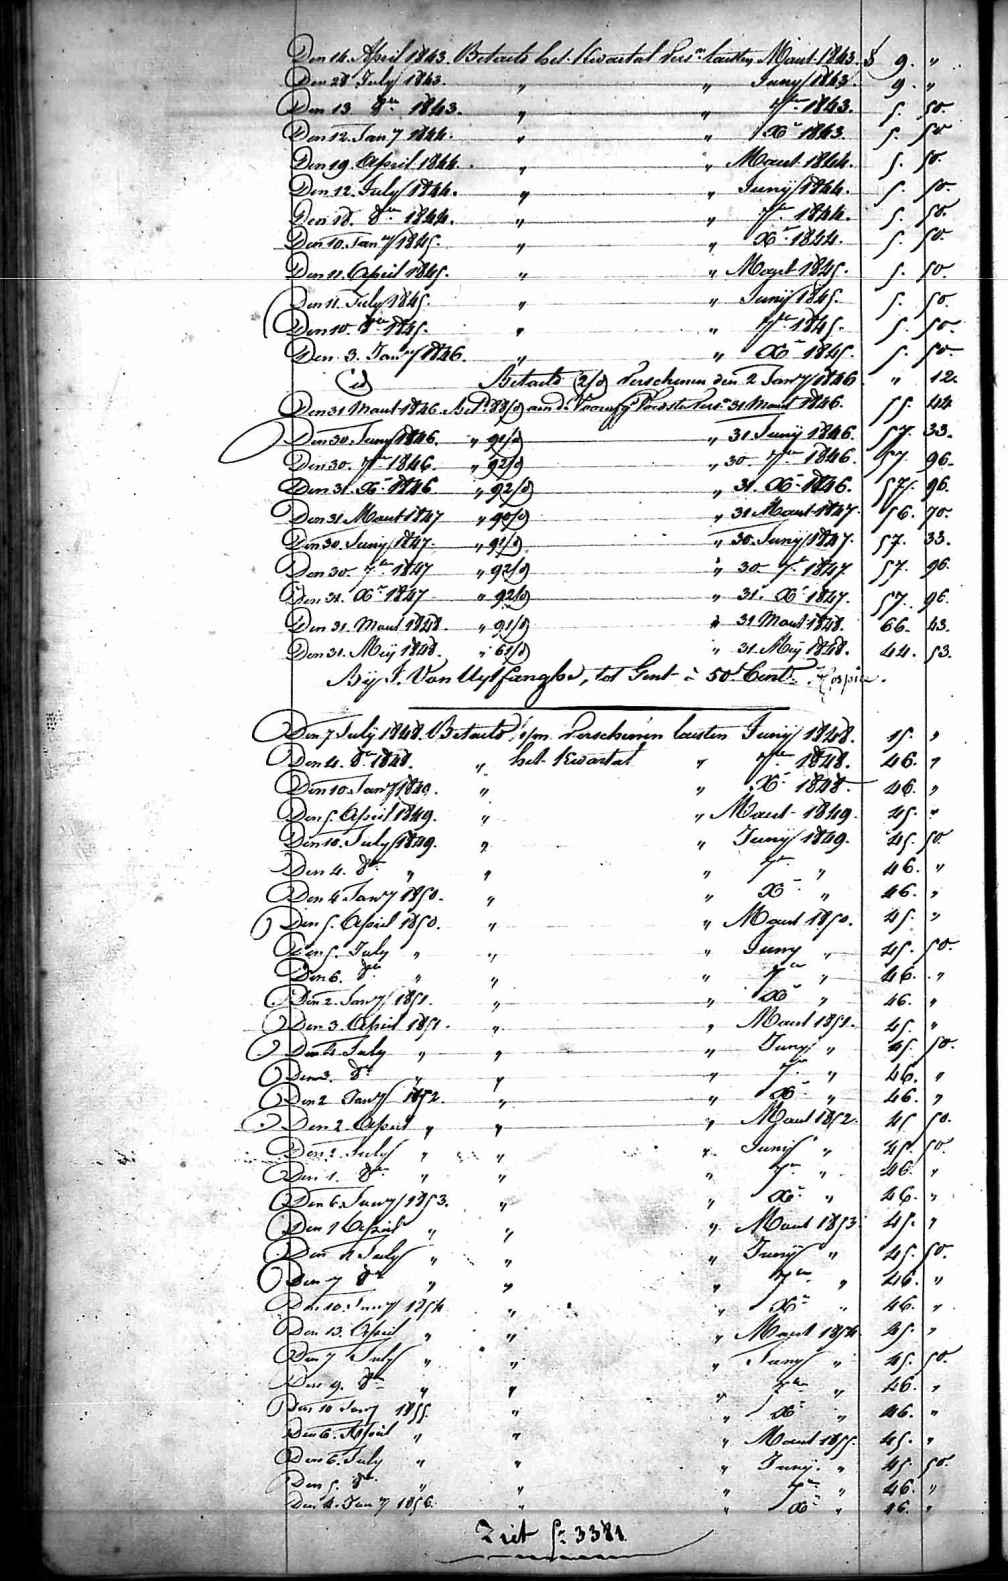 Den 14. April 1843. Betaelt het Kwartal Vers.n laesten Maert 1843. § 9. "
Den 28 July 1843. " " Juny 1843. 9. "
Den 13 8.re 1843. " " 7.re 1843. 5. 50.
Den 12. Jan.y 1844. " " X.r 1843. 5. 50
Den 19 April 1844. " " Maert 1844. 5. 50.
Den 12. July 1844. " " Junij 1844. 5. 50.
Den 18. 8.re 1844. " " 7.re 1844. 5. 50.
Den 10. Jan.y 1845. " " X.r 1844. 5. 50.
Den 11. April 1845. " " Maert 1845. 5. 50.
Den 11. July 1845. " " Junij 1845. 5. 50.
Den 10. 8.re 1845. " " 7.re 1845. 5. 50.
Den 3. Jan.y 1846. " " X.r 1845. 5. 50.
(id) Betaelt (2/d) Verschenen den 2 Jan.y 1846 " 12.
Den 31 Maert 1846. Bet. 88/d aend. Vers. 31 Maert 1846. 55. 44
Den 30. Juny 1846. " 91/d " 31 Junij 1846. 57. 33.
Den 30. 7.re 1846. " 92/d " 30. 7.re 1846. 57. 96.
Den 31. X.r 1846 " 92/d " 31. X.r 1846. 57. 96.
Den 31 Maert 1847 " 90/d " 31 Maert 1847. 56. 70.
Den 30. Juny 1847. " 91/d " 30. Junij 1847. 57. 33.
Den 30. 7.re 1847 " 92/d " 30 7.r 1847 57. 96.
Den 31. X.r 1847 " 92/d " 31. X.r 1847. 57. 96.
Den 31. Maert 1848. " 91/d " 31 Maert 1848. 66. 43.
Den 31. Meij 1848. " 61/d " 31. Meij 1848. 44. 53.
Bij J. Van Uytfanghe, tot Gent à 50 Cent. Hospice.
Den 7 July 1848. Betaelt 1/m Verschenen laesten Junij 1848. 15. "
Den 4. 8.re 1848. " het Kwartal " 7.re 1848. 46. "
Den 10 Jan.y 1849. " " X.r 1848. 46. "
Den 5. April 1849. " " Maert 1849. 45. "
Den 10. July 1849. " " Junij 1849. 45. 50
Den 4. 8.re " " " 7.re " 46. "
Den 4 Jan.y 1850. " " X.r " 46. "
Den 5. April 1850. " " Maert 1850. 45. "
Den 5. July " " " Juny " 45. 50.
Den 6. 8.re " " " 7.re " 46. "
Den 2. Jan.y 1851. " " X.r " 46. "
Den 3. April 1851. " " Maert 1851. 45. "
Den 4. July " " " Juny " 45. 50.
Den 3. 8.re " " " 7.re " 46. "
Den 2 Jan.y 1852. " " X.r " 46. "
Den 2. April " " " Maert 1852. 45 50.
Den 2. July " " " Junij " 45. 50.
Den 1. 8.re " " " 7.re " 46. "
Den 6. Jan.y 1853. " " X.r " 46. "
Den 1 April " " " Maert 1853. 45. "
Den July " " " Junij " 45. 50.
Den 7 8.re " " " 7.re " 46. "
Den 10. Jan.y 1854 " " X.r " 46. "
Den 13. April " " " Maert 1854. 45. "
Den 7 July " " " Juny " 45. 50.
Den 9. 8.re " " " 7.re " 46. "
Den 10 Jan.y 1855 " " X.r " 46. "
Den 6. April " " " Maert 1855. 45. "
Den 6. July " " " Junij. " 45. 50.
Den 5. 8.re " " " 7.re " 46. "
Den 4. Jan.y 1856. " " X.r " 46. "
Ziet f.o 3381.